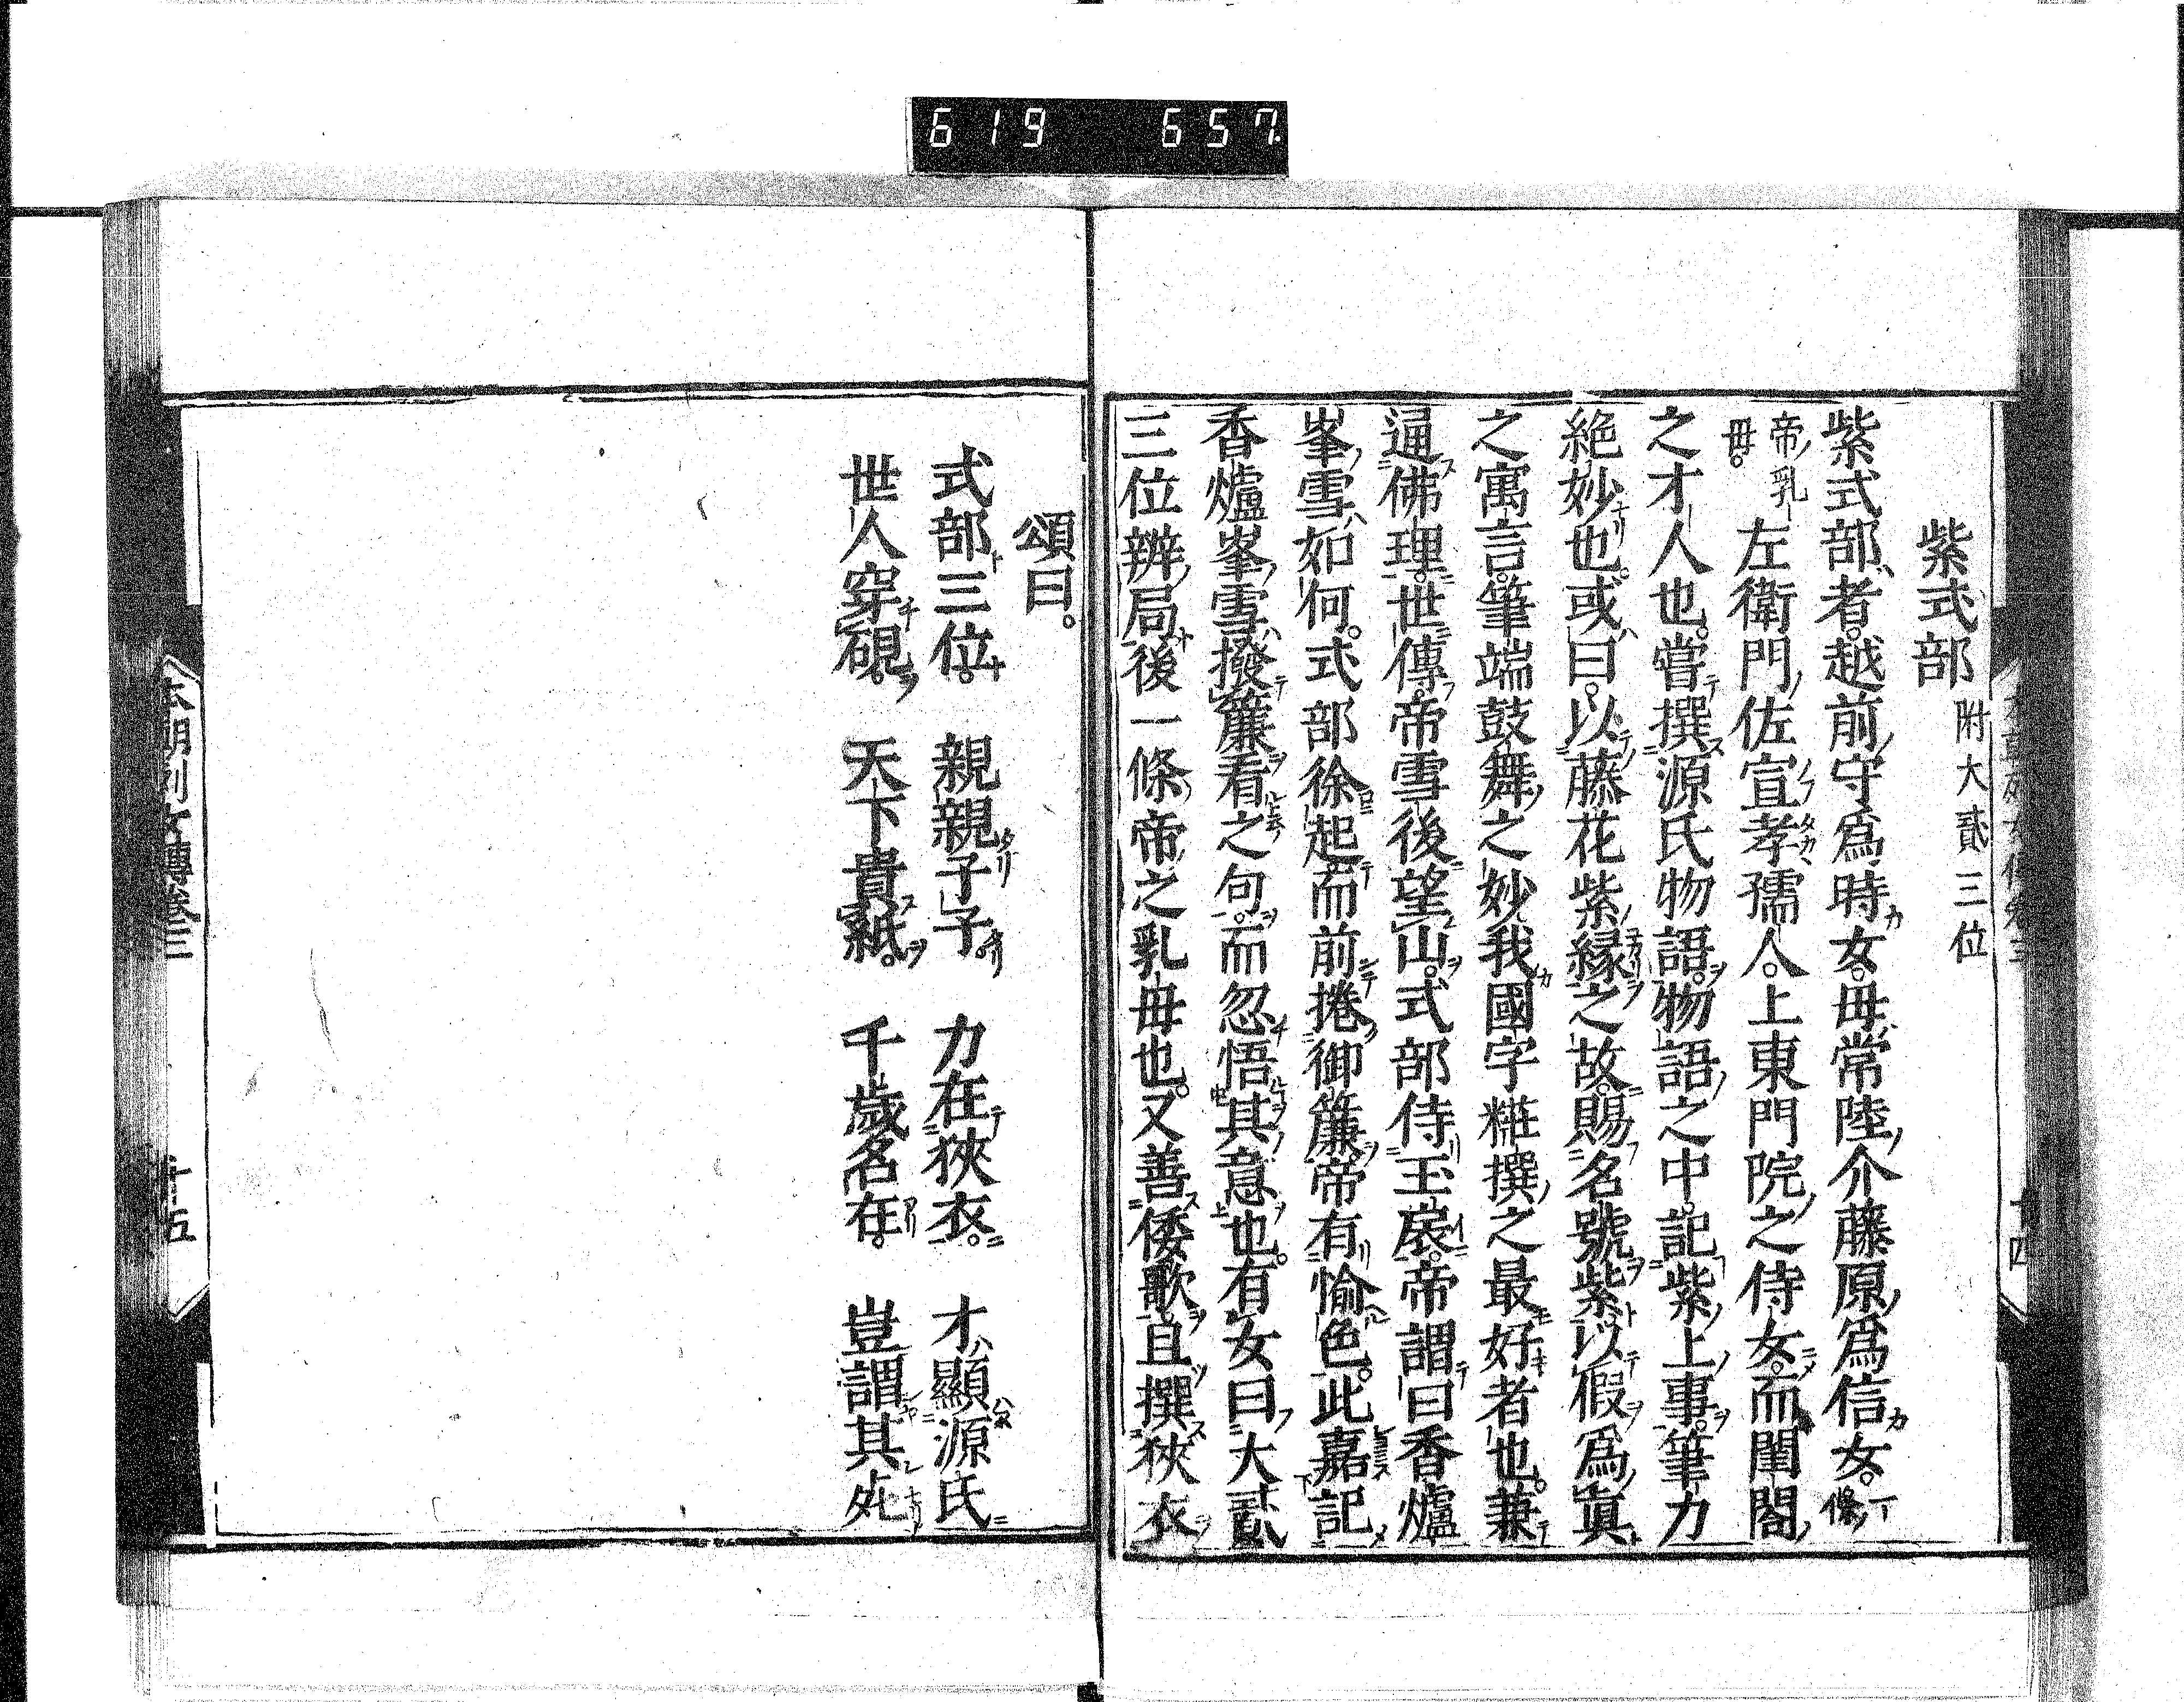 619 657
紫式部 附大貳三位
紫式部者。越前守為時女。母常陸介藤原為信女。一條
帝乳母。左衛門佐宣孝孺人。上東門院之侍女。而閨閤
之才人也。嘗撰源氏物語。物語之中。記紫上事。筆力
絶妙也。或曰。以藤花紫縁之故。賜名號紫。以假為真
之寓言。筆端鼓舞之妙。我國字糚撰之最好者也。兼
逼佛理。世傳。帝雪後望山。式部侍玉扆。帝謂曰香爐
峯雪如何。式部徐起而前捲御簾。帝有愉色。此嘉記
香爐峯雪撥簾看之句。而忽悟其意也。有女曰大貳
三位辨局。後一條帝之乳母也。又善倭歌。且撰狹衣
頌曰。
式部三位。 親親子子。 力在狹衣。 才顯源氏
世人穿硯。 天下貴紙。 千歳名在。 豈謂其死
本朝列女傳卷三 十五